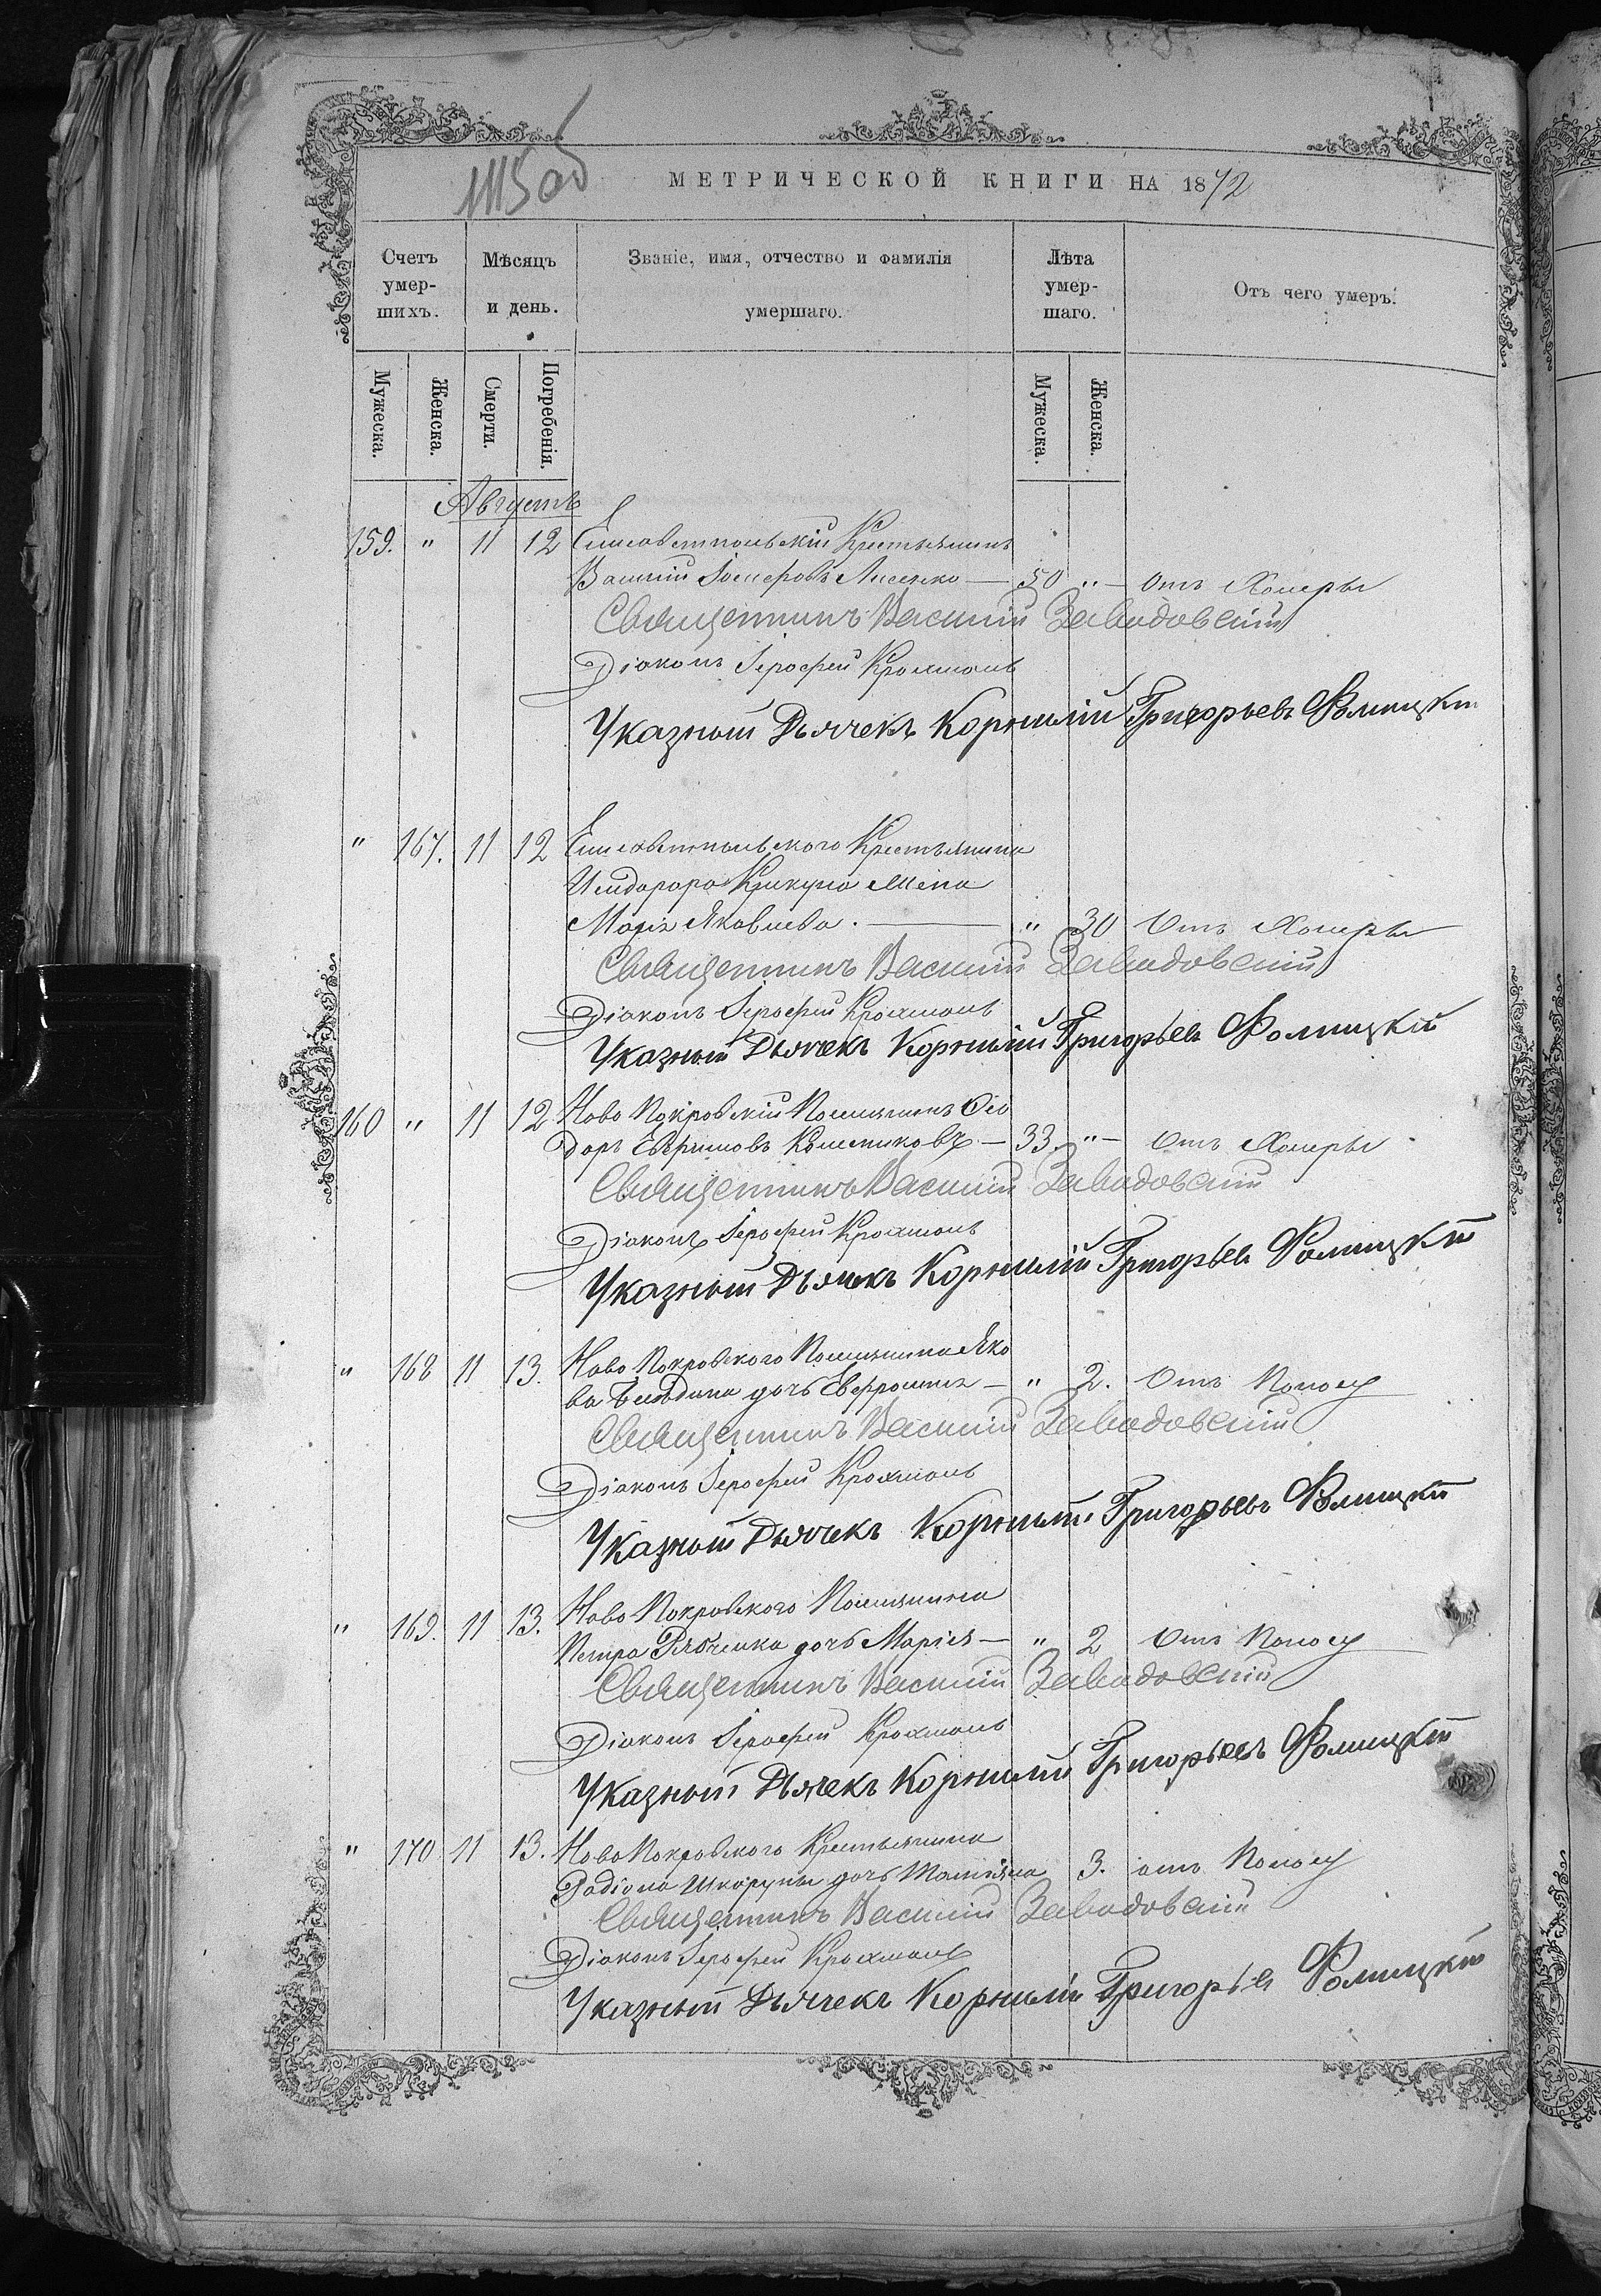 1115 об
МЕТРИЧЕСКОЙ КНИГИ НА 1872
Счетъ умер-шихъ.
Мѣсяцъ и день.
Званіе, имя, отчество и фамилія умершаго.
Лѣта умер-шаго.
Отъ чего умеръ.
Мужеска.
Женска.
Смерти.
Погребенія.
Мужеска.
Женска.
Августъ
159. " 11 12 Елисаветпольскій Крестьянинъ
Василій Лисенко — 50 " — отъ Холеры
Священникъ Василій Заводовскій
Діаконъ Іерофей Крохмаль
Указный Дьячекъ Корнилій Григорьевъ Фолицкій
" 167. 11 12 Елисаветпольского Крестьянина
Крикуна жена
Марія Яковлева. — " 30 Отъ Холеры
Священникъ Василій Заводовскій
Діаконъ Іерофей Крохмаль
Указный Дьячекъ Корнилій Григорьевъ Фолицкій
160 " 11 12 Ново Покровскій Поселянинъ Ѳео
доръ Евфимовъ — 33. " — Отъ Холеры
Священникъ Василій Заводовскій
Діаконъ Іерофей Крохмаль
Указный Дьячекъ Корнилій Григорьевъ Фолицкій
" 168 11 13. Ново Покровского Поселянина Яко
ва дочь — " 2. Отъ Поносу
Священникъ Василій Заводовскій
Діаконъ Іерофей Крохмаль
Указный Дьячекъ Корнилій Григорьевъ Фолицкій
" 169. 11 13. Ново Покровского Поселянина
Петра Рябченка дочь Марія — " 2 Отъ Поносу
Священникъ Василій Заводовскій
Діаконъ Іерофей Крохмаль
Указный Дьячекъ Корнилій Григорьевъ Фолицкій
" 170 11 13. Ново Покровского Крестьянина
Радіона Шкарупы дочь 3. отъ Поносу
Священникъ Василій Заводовскій
Діаконъ Іерофей Крохмаль
Указный Дьячекъ Корнилій Григорьевъ Фолицкій